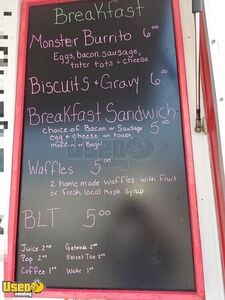 Breakfast
Monster Burrito 6.00
Eggs, bacon, sausage,
tater tots + cheese
Biscuits + Gravy 6.00
Breakfast Sandwich
choice of Bacon or Sausage 5.00
egg + cheese on toast,
muffin or Bagel
Waffles 5.00
2 home made waffles with fruit
or fresh local Maple Syrup
BLT 5.00
Juice 2.00 Gatorade 2.00
Pop 2.00 Sweet Tea 2.00
Coffee 1.00 Water 1.00
Used
vending